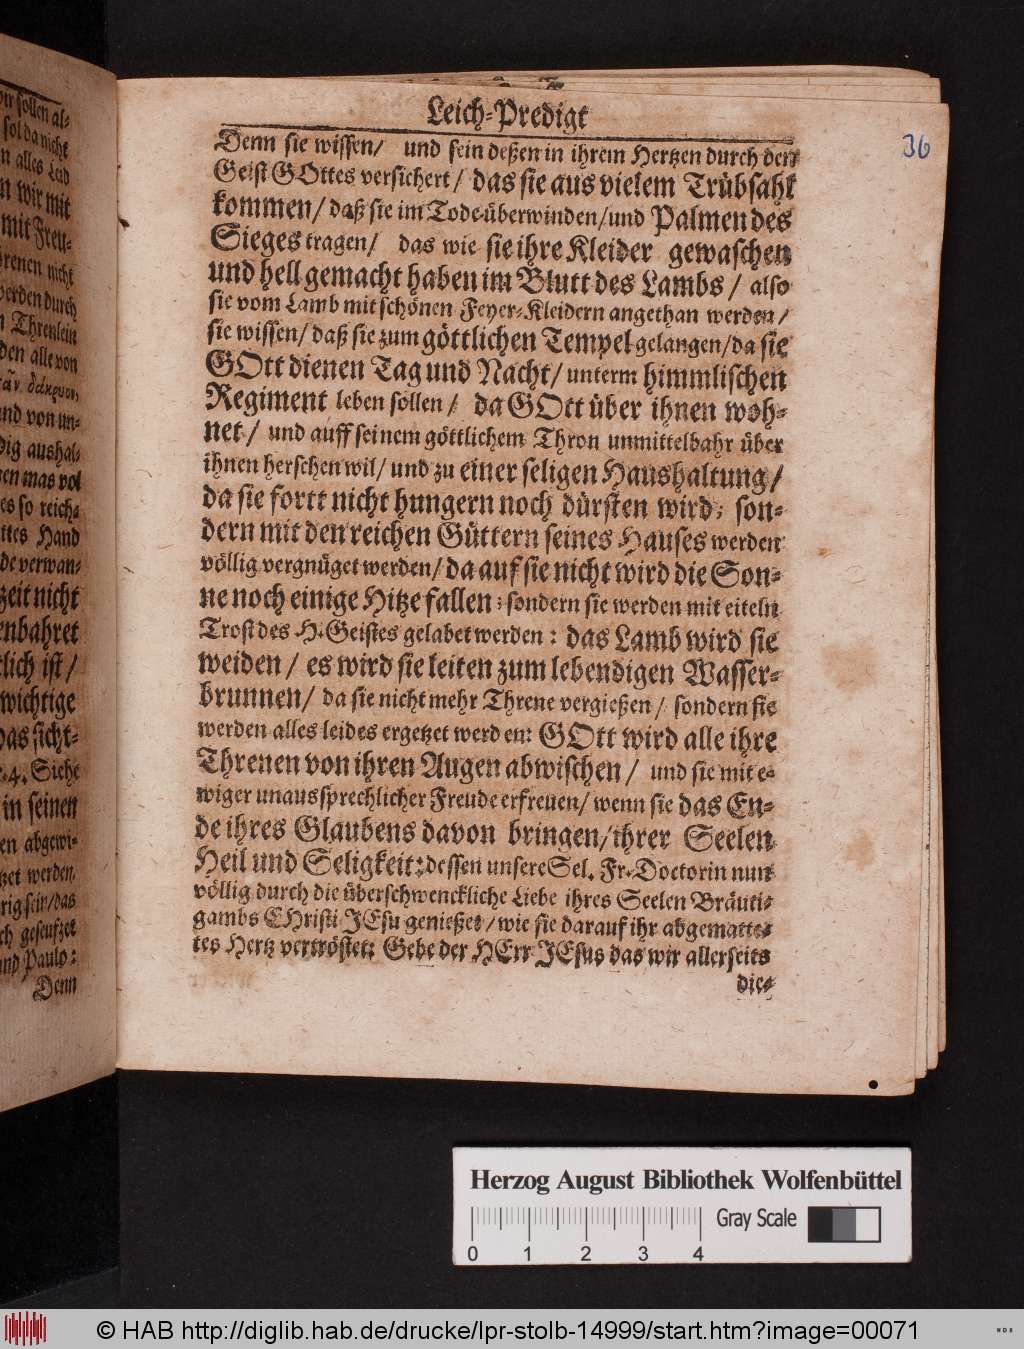 wir sollen al-
sol da nicht
n alles Leid
n wir mit
mit Freu-
hrenen nicht
werden durch
n Threnlein
den alle von
δάκρυον,
und von un-
dig aushal-
nen mas vol
es so reich-
ttes Hand
de verwan-
zeit nicht
enbahret
tlich ist /
wichtige
das sicht-
.4. Siehe
in seinen
en abgewi-
tzet werden,
rig seir/das
ch geseufzet
und Paulo:
Denn
Leich-Predigt
36
Denn sie wissen/ und sein deßen in ihrem Hertzen durch den
Geist GOttes versichert/ das sie aus vielem Trübsahl
kommen/ daß sie im Tode überwinden/und Palmen des
Sieges tragen/ das wie sie ihre Kleider gewaschen
und hell gemacht haben im Blutt des Lambs / also
sie vom Lamb mit schönen Feyer-Kleidern angethan werden/
sie wissen/ daß sie zum göttlichen Tempel gelangen/da sie
GOtt dienen Tag und Nacht/ unterm himmlischen
Regiment leben sollen / da GOtt über ihnen woh-
net/ und auff seinem göttlichem Thron unmittelbahr über
ihnen herschen wil/ und zu einer seligen Haushaltung/
da sie fortt nicht hungern noch dürsten wird, son-
dern mit den reichen Güttern seines Hauses werden
völlig vergnüget werden/ da auf sie nicht wird die Son-
ne noch einige Hitze fallen; sondern sie werden mit eiteln
Trost des H. Geistes gelabet werden: das Lamb wird sie
weiden / es wird sie leiten zum lebendigen Wasser-
brunnen/ da sie nicht mehr Threne vergießen/ sondern sie
werden alles leides ergetzet werden: GOtt wird alle ihre
Threnen von ihren Augen abwischen / und sie mit e-
wiger unaussprechlicher Freude erfreuen/ wenn sie das En-
de ihres Glaubens davon bringen/ihrer Seelen
Heil und Seligkeit: dessen unsere Sel. Fr. Doctorin nun
völlig durch die überschwenckliche Liebe ihres Seelen Bräuti-
gambs CHristi JEsu genießet/ wie sie darauf ihr abgematte-
tes Hertz vertröstet: Gebe der HErr JEsus das wir allerseits
die-
Herzog August Bibliothek Wolfenbüttel
Gray Scale
0 1 2 3 4
© HAB http://diglib.hab.de/drucke/lpr-stolb-14999/start.htm?image=00071